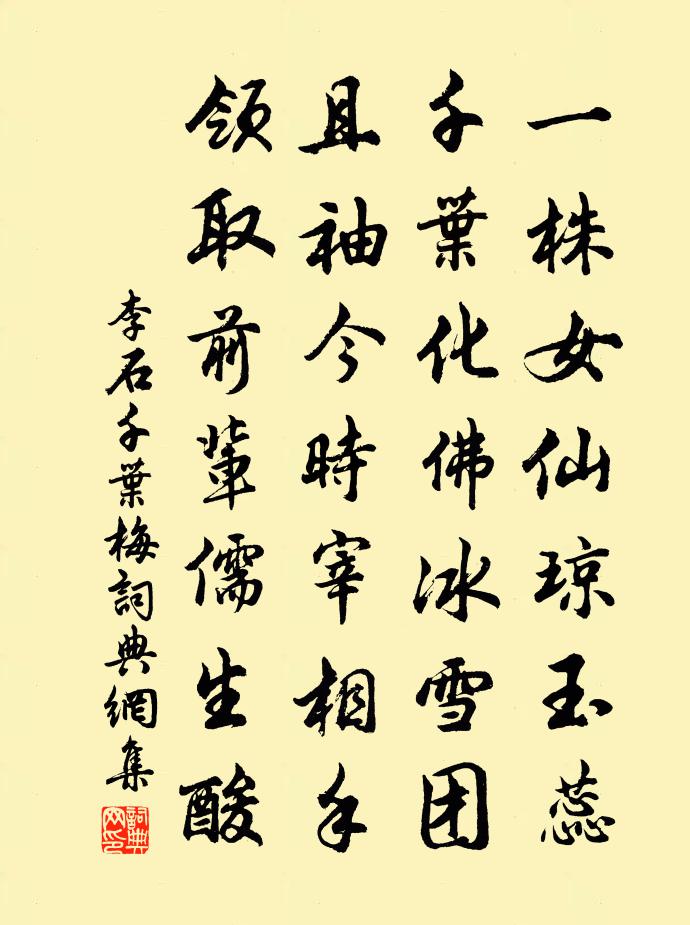 一株女仙琼玉蕊
千葉化佛冰雪团
且袖今時宰相手
領取前輩儒生酸
李石千葉梅詞典網集
詞典网印